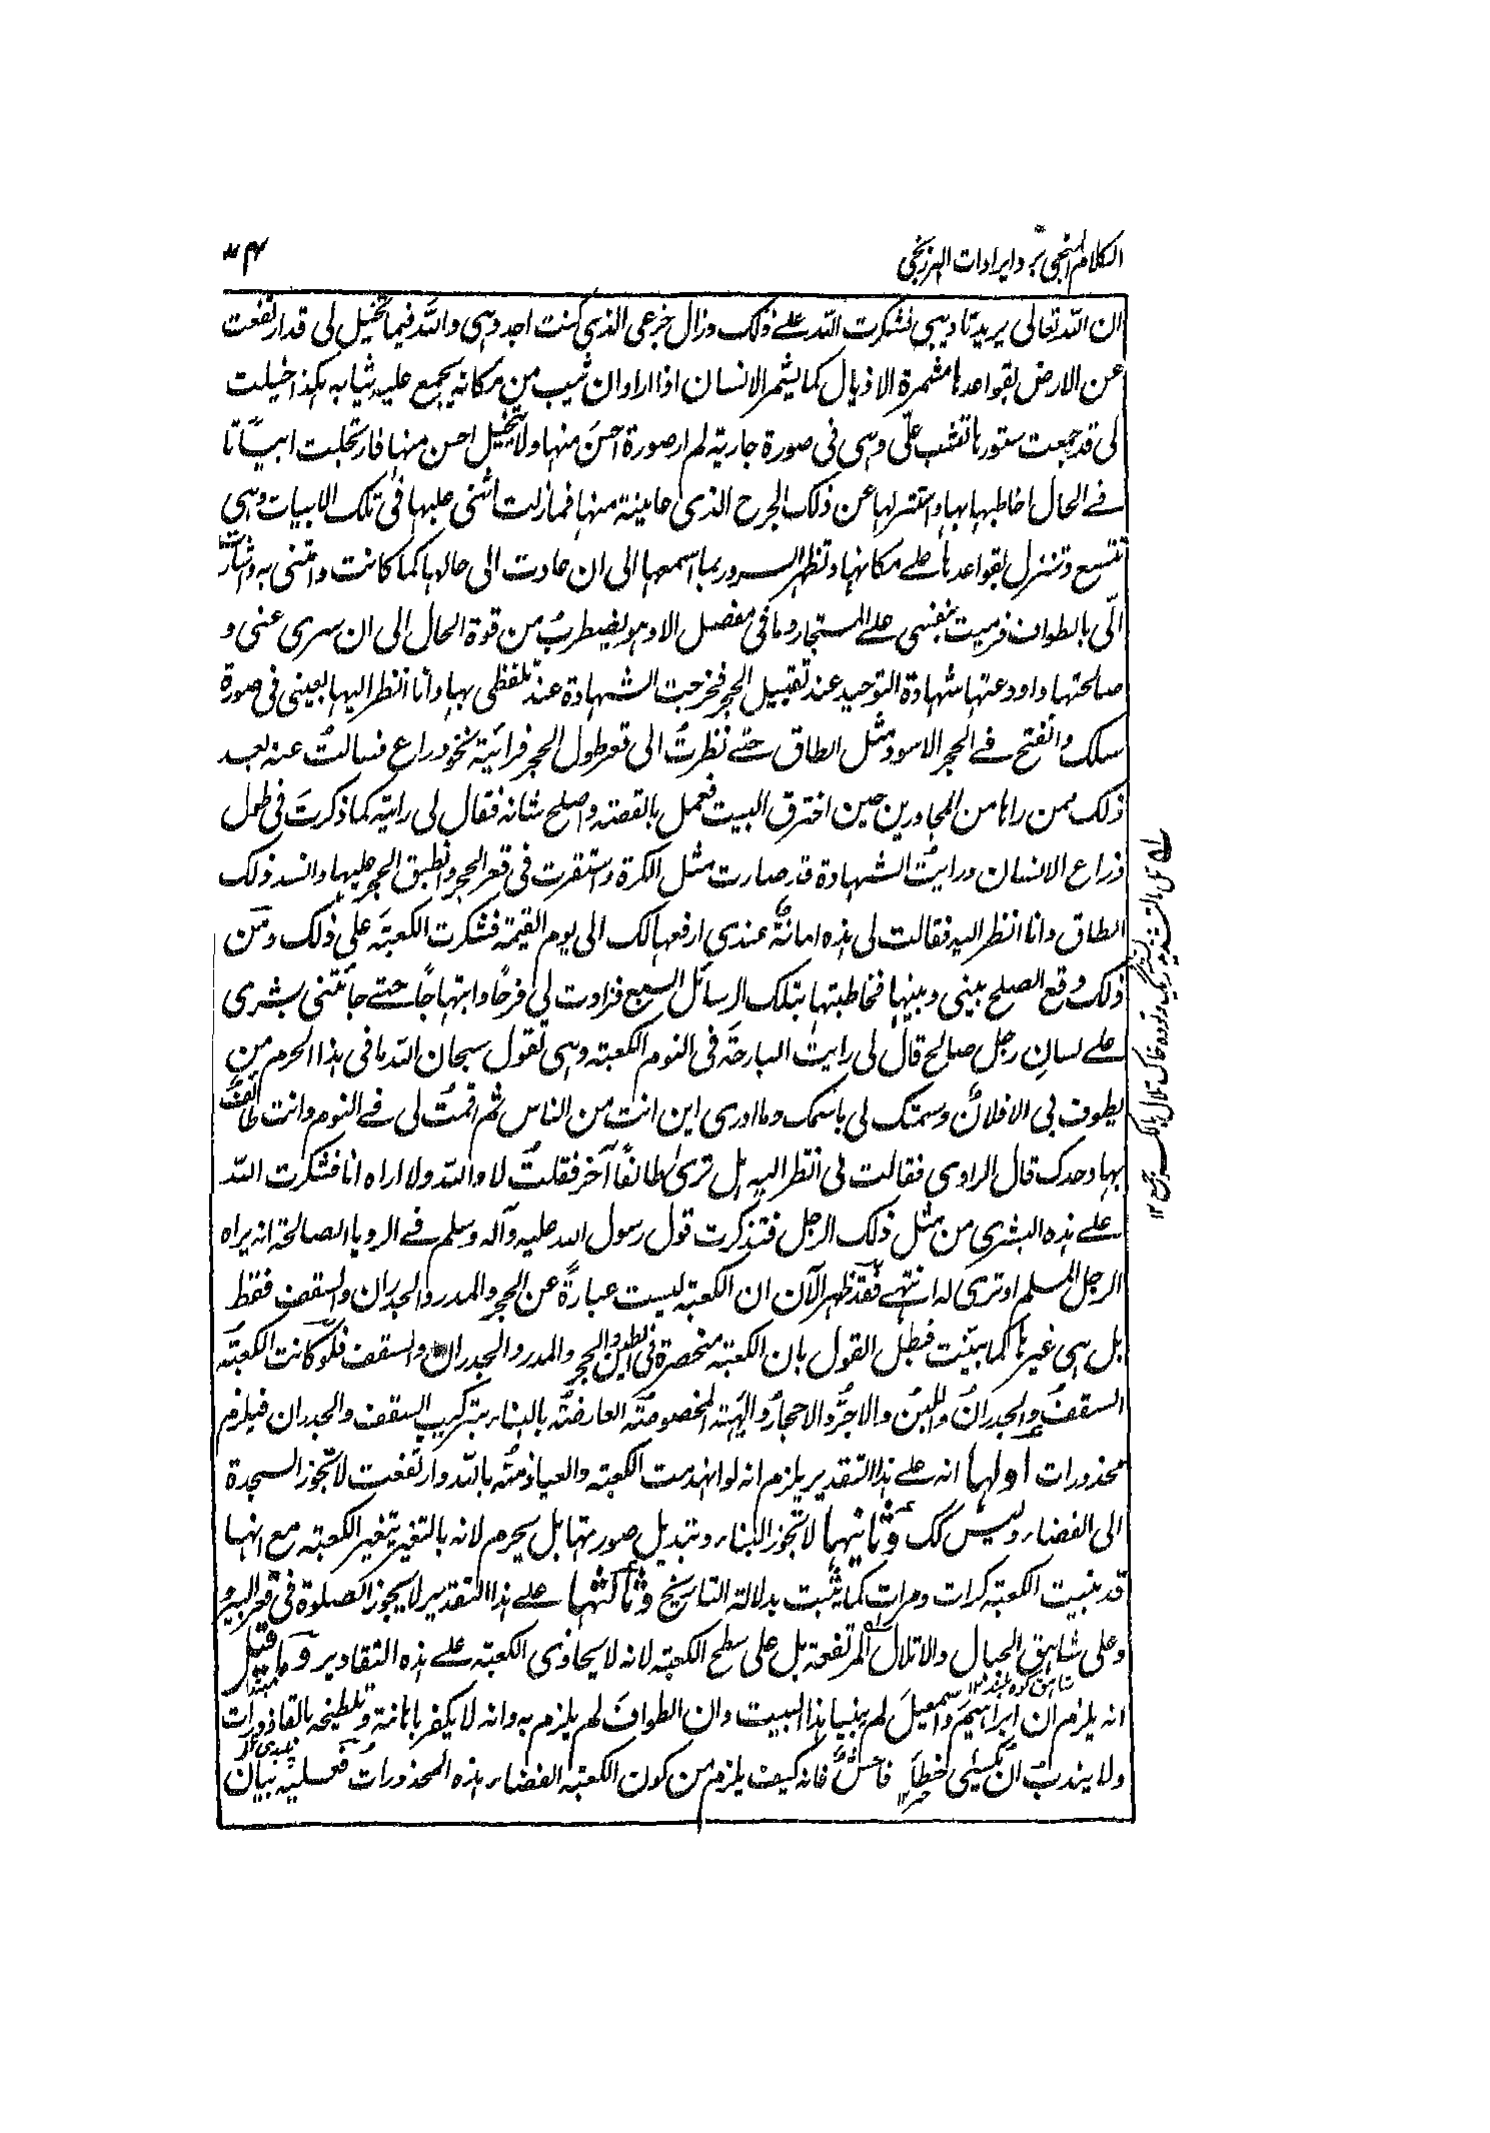 الکلام المنجی برد ایرادات البرزنجی
۷۴
ان الله تعالی یرید تادیبی فشکرت الله علے ذلک وزال جزعی الذی کنت اجد وہی والله فیما تخیل لی قد ارتفعت
عن الارض بقواعدہا مشمرة الاذیال کما یشمر الانسان اذا اراد ان یثب من مکانہ یجمع علیہ ثیابہ ہکذا خیلت
لی قد جمعت ستورہا تثب علّی وہی فی صورة جاریة لم ار صورة احسن منہا ولا یتخیل احسن منہا فارتجلت ابیاتا
فے الحال اخاطبہا بہا واستنزلہا عن ذلک الحرج الذی عاینتہ منہا فمازلت اثنی علیہا فی تلک الابیات وہی
تتسع وتنزل بقواعدہا علے مکانہا وتظہر السرور بما اسمعہا الی ان عادت الی حالہا کما کانت وامنتنی بہ واشارت
الّی بالطواف فرمیت بنفسی علے المستجار وما فی مفصل الا وہو یضطرب من قوة الحال الی ان سری عنی و
صالحتہا واودعتہا شہادة التوحید عند تقبیل الحجر فخرجت الشہادة عند تلفظی بہا وانا انظر الیہا بعینی فی صورة
سلک وانفتح فے الحجر الاسود مثل الطاق حتے نظرت الی قعر طول الحجر فرائیتہ نحو ذراع فسالت عنہ بعد
ذلک ممن راہا من المجاورین حین احترق البیت فعمل بالفضة واصلح شانہ فقال لی رایتہ کما ذکرت فی طول
ذراع الانسان ورایت الشہادة قد صارت مثل الکرة واستقرت فی قعر الحجر وانطبق الحجر علیہا وانسد ذلک
الطاق وانا انظر الیہ فقالت لی ہذہ امانة عندی ارفعہا لک الی یوم القیمة فشکرت الکعبة علی ذلک ومن
ذلک وقع الصلح بینی وبینہا فخاطبتہا بتلک الرسائل السبع فزادت لی فرحًا وابتہاجًا حتے جأتنی بشری
علے لسان رجل صالح قال لی رایت البارحة فی النوم الکعبة وہی تقول سبحان الله ما فی ہذا الحرم من
یطوف بی الا فلان وسمتک لی باسمک وما ادری این انت من الناس ثم اقمت لی فے النوم وانت طائف
بہا وحدک قال الراوی فقالت لی انظر الیہ ہل تری طائفًا آخر فقلت لا والله ولا اراہ انا فشکرت الله
علے ہذہ البشری من مثل ذلک الرجل فتذکرت قول رسول الله علیہ وآلہ وسلم فے الرویا الصالحة انہ یراہ
الرجل المسلم او تری لہ انتہے فقد ظہر الآن ان الکعبة لیست عبارةً عن الحجر والمدر والجدران والسقف فقط
بل ہی غیرہا کما بیّنت فبطل القول بان الکعبة منحصرة فی الطین والحجر والمدر والجدران والسقف فلو کانت الکعبة
السقف والجدران واللبن والاجر والاحجار والہیئة المخصوصة العارضة بالبناء بترکیب السقف والجدران فیلزم
محذورات اولہا انہ علے ہذا التقدیر یلزم انہ لو انہدمت الکعبة والعیاذ منہ بالله وارتفعت لا تجوز السجدة
الی الفضاء ولیس کک وثانیہا لا تجوز البناء وتبدیل صورتہا بل یحرم لانہ بالتغیر یتغیر الکعبة مع انہا
قد بنیت الکعبة کرات ومرات کما یثبت بدلالة التاریخ وثالثہا علے ہذا التقدیر لا یجوز الصلوة فی قعر البیر و
وعلی شاہق الجبال والاتلال المرتفعة بل علی سطح الکعبة لانہ لا یحاذی الکعبة علے ہذہ التقادیر وما قیل
شاہق کوہ بلند ۱۲
مبتدا
انہ یلزم ان ابراہیم واسمعیل لم یبنیا ہذا البیت وان الطواف لم یلزم بہ وانہ لا یکفر باہانتہ وتلطیخہ بالقاذورات
پلیدی ۱۲
ولا یندب ان یکسی لخطأ فاحش فانہ کیف یلزم من کون الکعبة الفضاء ہذہ المحذورات فعلیہ بیان
خبر ۱۲